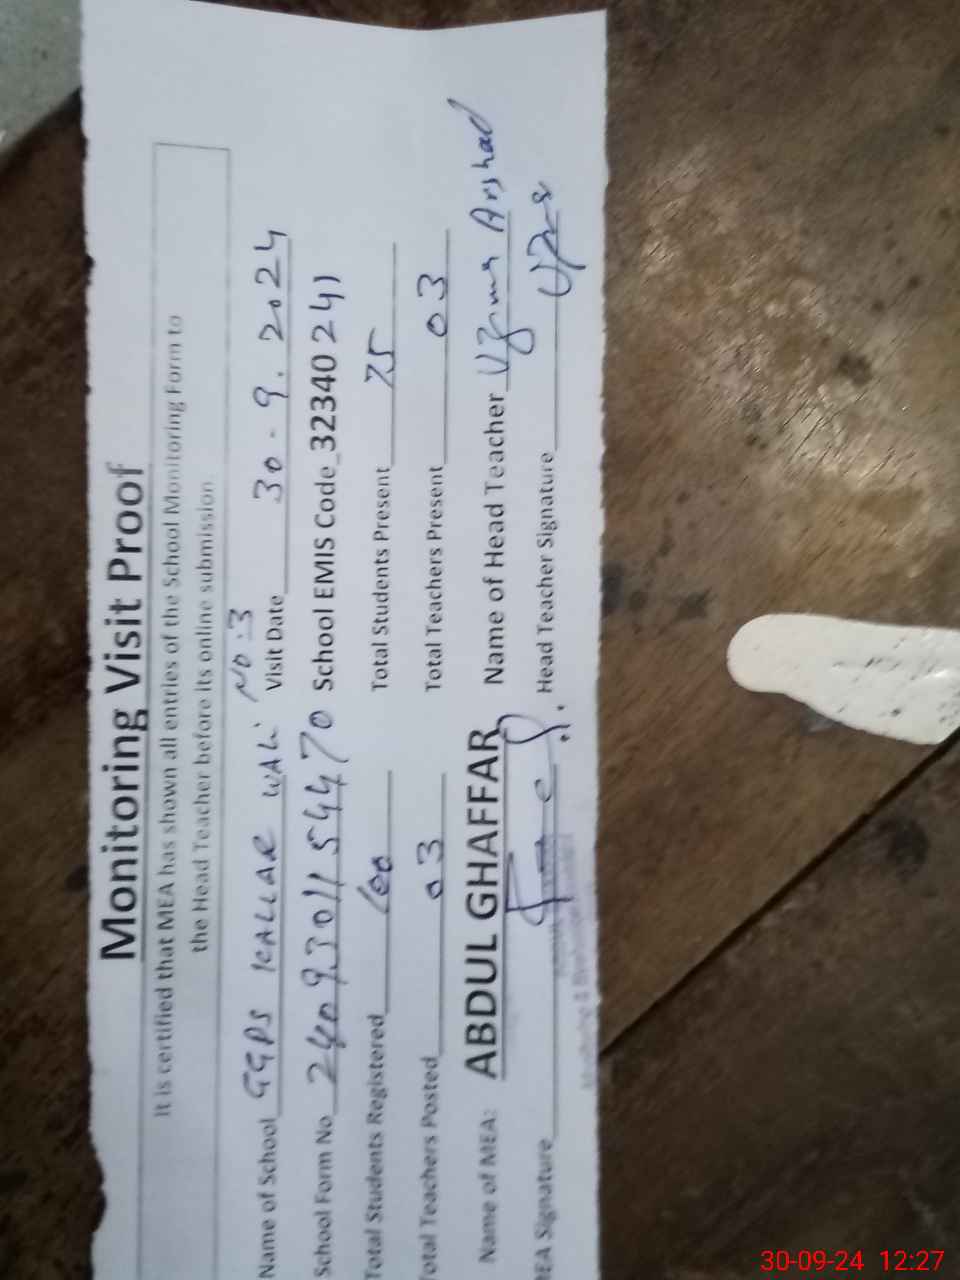 Monitoring Visit Proof
It is certified that MEA has shown all entries of the School Monitoring Form to
the Head Teacher before its online submission.
Name of School GGPS KALLAR WALI NO.3 Visit Date 30-9.2024
School Form No 2409301154470 School EMIS Code_32340241
Total Students Registered 100 Total Students Present 75
Total Teachers Posted 03 Total Teachers Present 03
Name of MEA: ABDUL GHAFFAR Name of Head Teacher Uzma Arshad
MEA Signature Head Teacher Signature
30-09-24 12:27